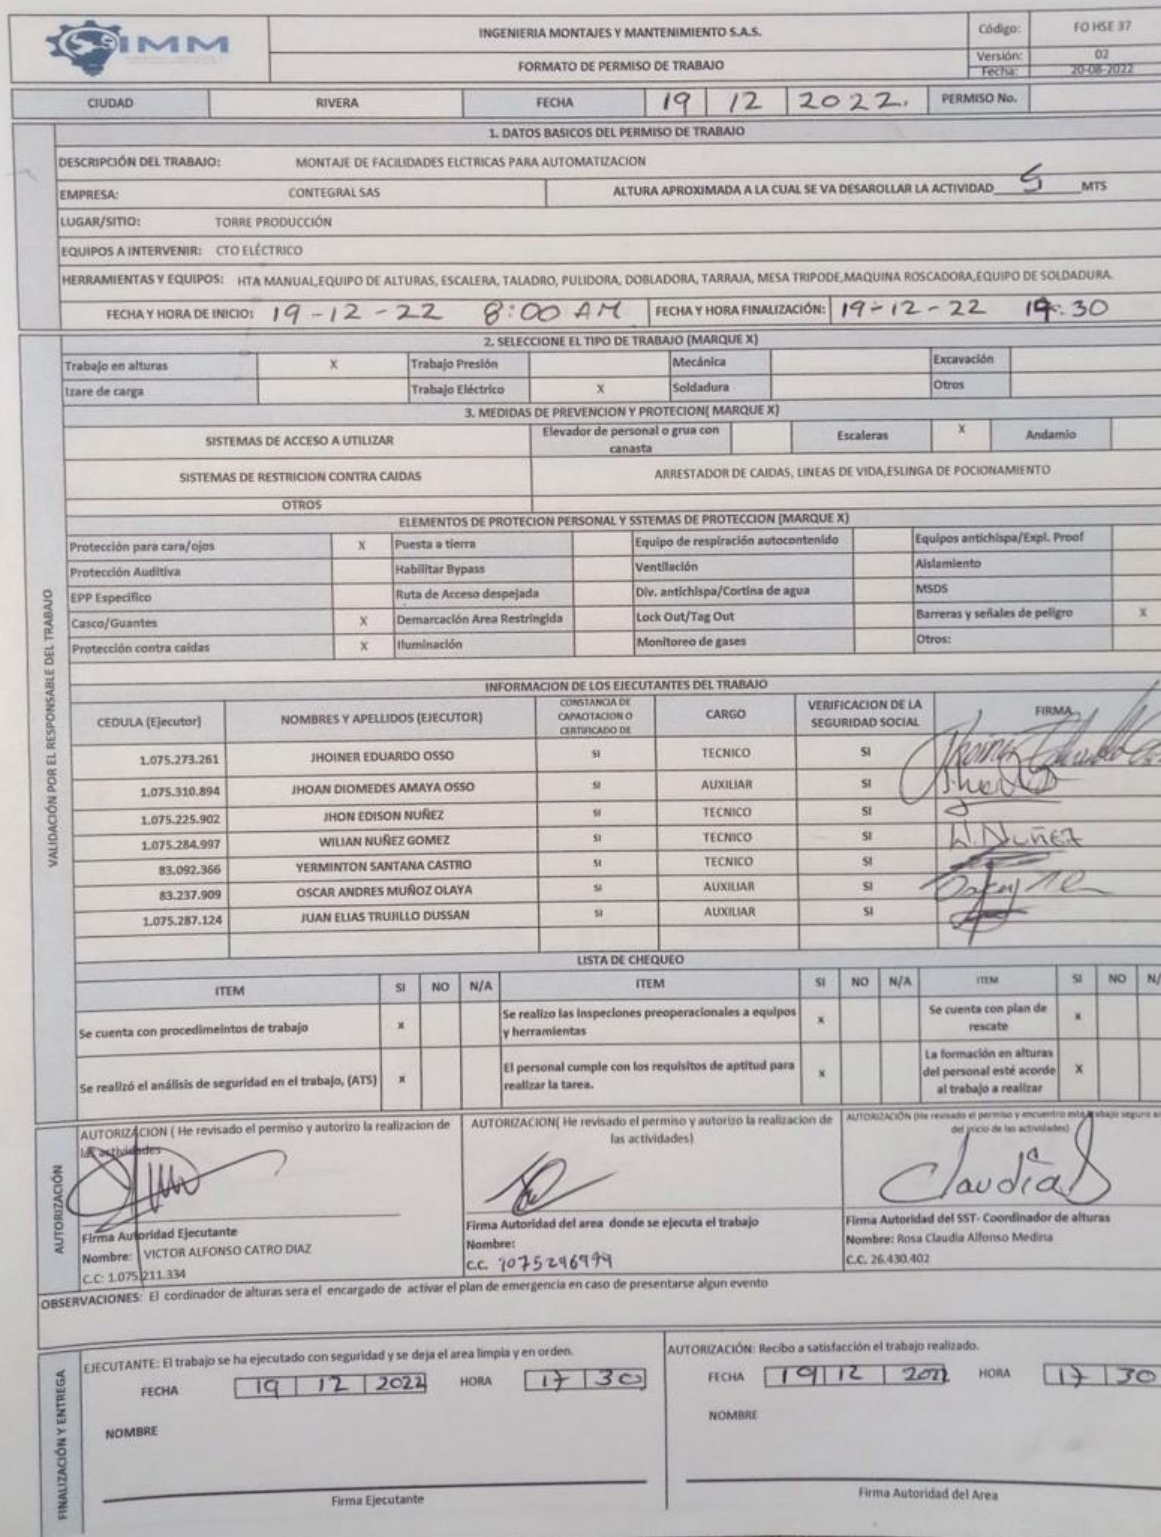 SIMM
INGENIERIA MONTAJES Y MANTENIMIENTO S.A.S.
FORMATO DE PERMISO DE TRABAJO
Código: FO HSE 37
Versión: 02
Fecha: 20-08-2022
CIUDAD RIVERA FECHA 19 12 2022. PERMISO No.
1. DATOS BASICOS DEL PERMISO DE TRABAJO
DESCRIPCIÓN DEL TRABAJO: MONTAJE DE FACILIDADES ELCTRICAS PARA AUTOMATIZACION
EMPRESA: CONTEGRAL SAS ALTURA APROXIMADA A LA CUAL SE VA DESAROLLAR LA ACTIVIDAD 5 MTS
LUGAR/SITIO: TORRE PRODUCCIÓN
EQUIPOS A INTERVENIR: CTO ELÉCTRICO
HERRAMIENTAS Y EQUIPOS: HTA MANUAL,EQUIPO DE ALTURAS, ESCALERA, TALADRO, PULIDORA, DOBLADORA, TARRAJA, MESA TRIPODE,MAQUINA ROSCADORA,EQUIPO DE SOLDADURA.
FECHA Y HORA DE INICIO: 19-12-22 8:00 AM FECHA Y HORA FINALIZACIÓN: 19-12-22 :30
VALIDACIÓN POR EL RESPONSABLE DEL TRABAJO
2. SELECCIONE EL TIPO DE TRABAJO (MARQUE X)
Trabajo en alturas X Trabajo Presión Mecánica Excavación
Izare de carga Trabajo Eléctrico X Soldadura Otros
3. MEDIDAS DE PREVENCION Y PROTECION( MARQUE X)
SISTEMAS DE ACCESO A UTILIZAR Elevador de personal o grua con canasta Escaleras X Andamio
SISTEMAS DE RESTRICION CONTRA CAIDAS ARRESTADOR DE CAIDAS, LINEAS DE VIDA,ESLINGA DE POCIONAMIENTO
OTROS
ELEMENTOS DE PROTECION PERSONAL Y SSTEMAS DE PROTECCION (MARQUE X)
Protección para cara/ojos X Puesta a tierra Equipo de respiración autocontenido Equipos antichispa/Expl. Proof
Protección Auditiva Habilitar Bypass Ventilación Aislamiento
EPP Especifico Ruta de Acceso despejada Div. antichispa/Cortina de agua MSDS
Casco/Guantes X Demarcación Area Restringida Lock Out/Tag Out Barreras y señales de peligro X
Protección contra caidas X Iluminación Monitoreo de gases Otros:
INFORMACION DE LOS EJECUTANTES DEL TRABAJO
CEDULA (Ejecutor) NOMBRES Y APELLIDOS (EJECUTOR) CONSTANCIA DE CAPACITACION O CERTIFICADO DE CARGO VERIFICACION DE LA SEGURIDAD SOCIAL FIRMA
1.075.273.261 JHOINER EDUARDO OSSO SI TECNICO SI
1.075.310.894 JHOAN DIOMEDES AMAYA OSSO SI AUXILIAR SI
1.075.225.902 JHON EDISON NUÑEZ SI TECNICO SI
1.075.284.997 WILIAN NUÑEZ GOMEZ SI TECNICO SI W. NUÑEZ
83.092.366 YERMINTON SANTANA CASTRO SI TECNICO SI
83.237.909 OSCAR ANDRES MUÑOZ OLAYA SI AUXILIAR SI
1.075.287.124 JUAN ELIAS TRUJILLO DUSSAN SI AUXILIAR SI
LISTA DE CHEQUEO
ITEM SI NO N/A ITEM SI NO N/A ITEM SI NO N/
Se cuenta con procedimeintos de trabajo X Se realizo las inspeciones preoperacionales a equipos y herramientas X Se cuenta con plan de rescate X
Se realizó el análisis de seguridad en el trabajo, (ATS) X El personal cumple con los requisitos de aptitud para realizar la tarea. X La formación en alturas del personal esté acorde al trabajo a realizar X
AUTORIZACIÓN
AUTORIZACION ( He revisado el permiso y autorizo la realizacion de las actividades
AUTORIZACION( He revisado el permiso y autorizo la realizacion de las actividades)
AUTORIZACIÓN (He revisado el permiso y encuentro este trabajo seguro del inicio de las actividades)
Claudia
Firma Autoridad Ejecutante
Nombre: VICTOR ALFONSO CATRO DIAZ
C.C: 1.075.211.334
Firma Autoridad del area donde se ejecuta el trabajo
Nombre:
C.C. 1075296994
Firma Autoridad del SST- Coordinador de alturas
Nombre: Rosa Claudia Alfonso Medina
C.C. 26.430.402
OBSERVACIONES: El cordinador de alturas sera el encargado de activar el plan de emergencia en caso de presentarse algun evento
FINALIZACIÓN Y ENTREGA
EJECUTANTE: El trabajo se ha ejecutado con seguridad y se deja el area limpia y en orden.
FECHA 19 12 2022 HORA 17 30
NOMBRE
Firma Ejecutante
AUTORIZACIÓN: Recibo a satisfacción el trabajo realizado.
FECHA 19 12 2022 HORA 17 30
NOMBRE
Firma Autoridad del Area